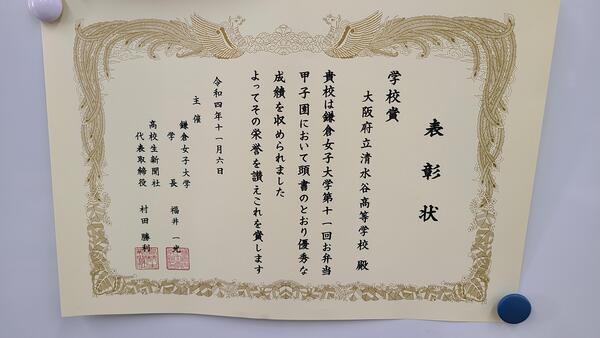 表彰状
学校賞
大阪府立清水谷高等学校 殿
貴校は鎌倉女子大学第十一回お弁当
甲子園において頭書のとおり優秀な
成績を収められました
よってその栄誉を讃えこれを賞します
令和四年十一月六日
主催
鎌倉女子大学
学長 福井 一光
高校生新聞社
代表取締役 村田 勝利